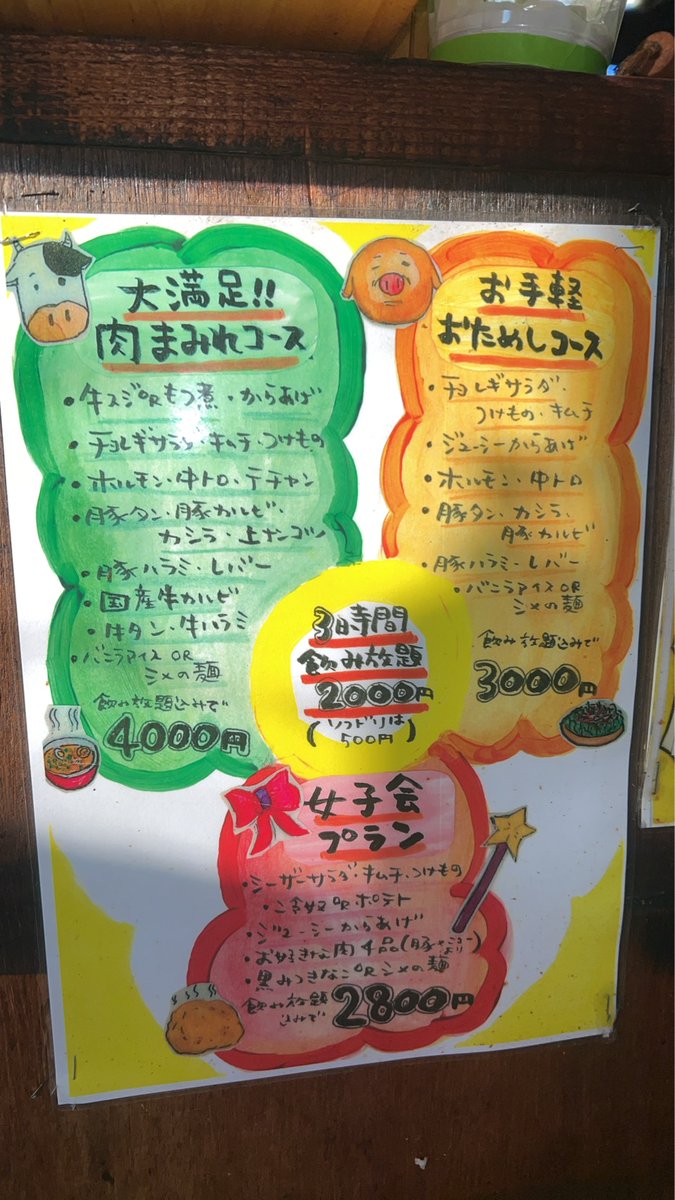 大満足!!
肉まみれコース
・牛スジORもつ煮・からあげ
・チョレギサラダ・キムチ・つけもの
・ホルモン・中トロ・テチャン
・豚タン・豚カルビ・
カシラ・上ナンコツ
・豚ハラミ・レバー
・国産牛カルビ
・牛タン・牛ハラミ
・バニラアイスOR
シメの麺
飲み放題込みで
4000円
お手軽
おためしコース
・チョレギサラダ・
つけもの・キムチ
・ジューシーからあげ
・ホルモン・中トロ
・豚タン・カシラ・
豚カルビ
・豚ハラミ・レバー
・バニラアイスOR
シメの麺
飲み放題込みで
3000円
3時間
飲み放題
2000円
(ソフドリは
500円)
女子会
プラン
・シーザーサラダ・キムチ・つけもの
・ORポテト
・ジューシーからあげ
・お好きな肉4品(豚メニューより)
・黒みつきなこORシメの麺
飲み放題
込みで
2800円